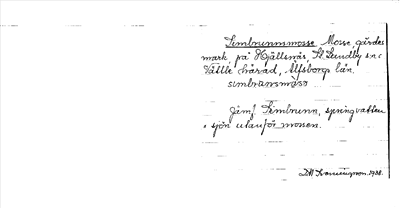 Simbrunnsmosse Mosse, gärdes
mark på Hjällsnäs, St. Lundby sn.
Vättle härad, Älfsborgs län.
simbrunsmåso
Jämf. Simbrunn, springvatten
i sjön utanför mossen.
1938.